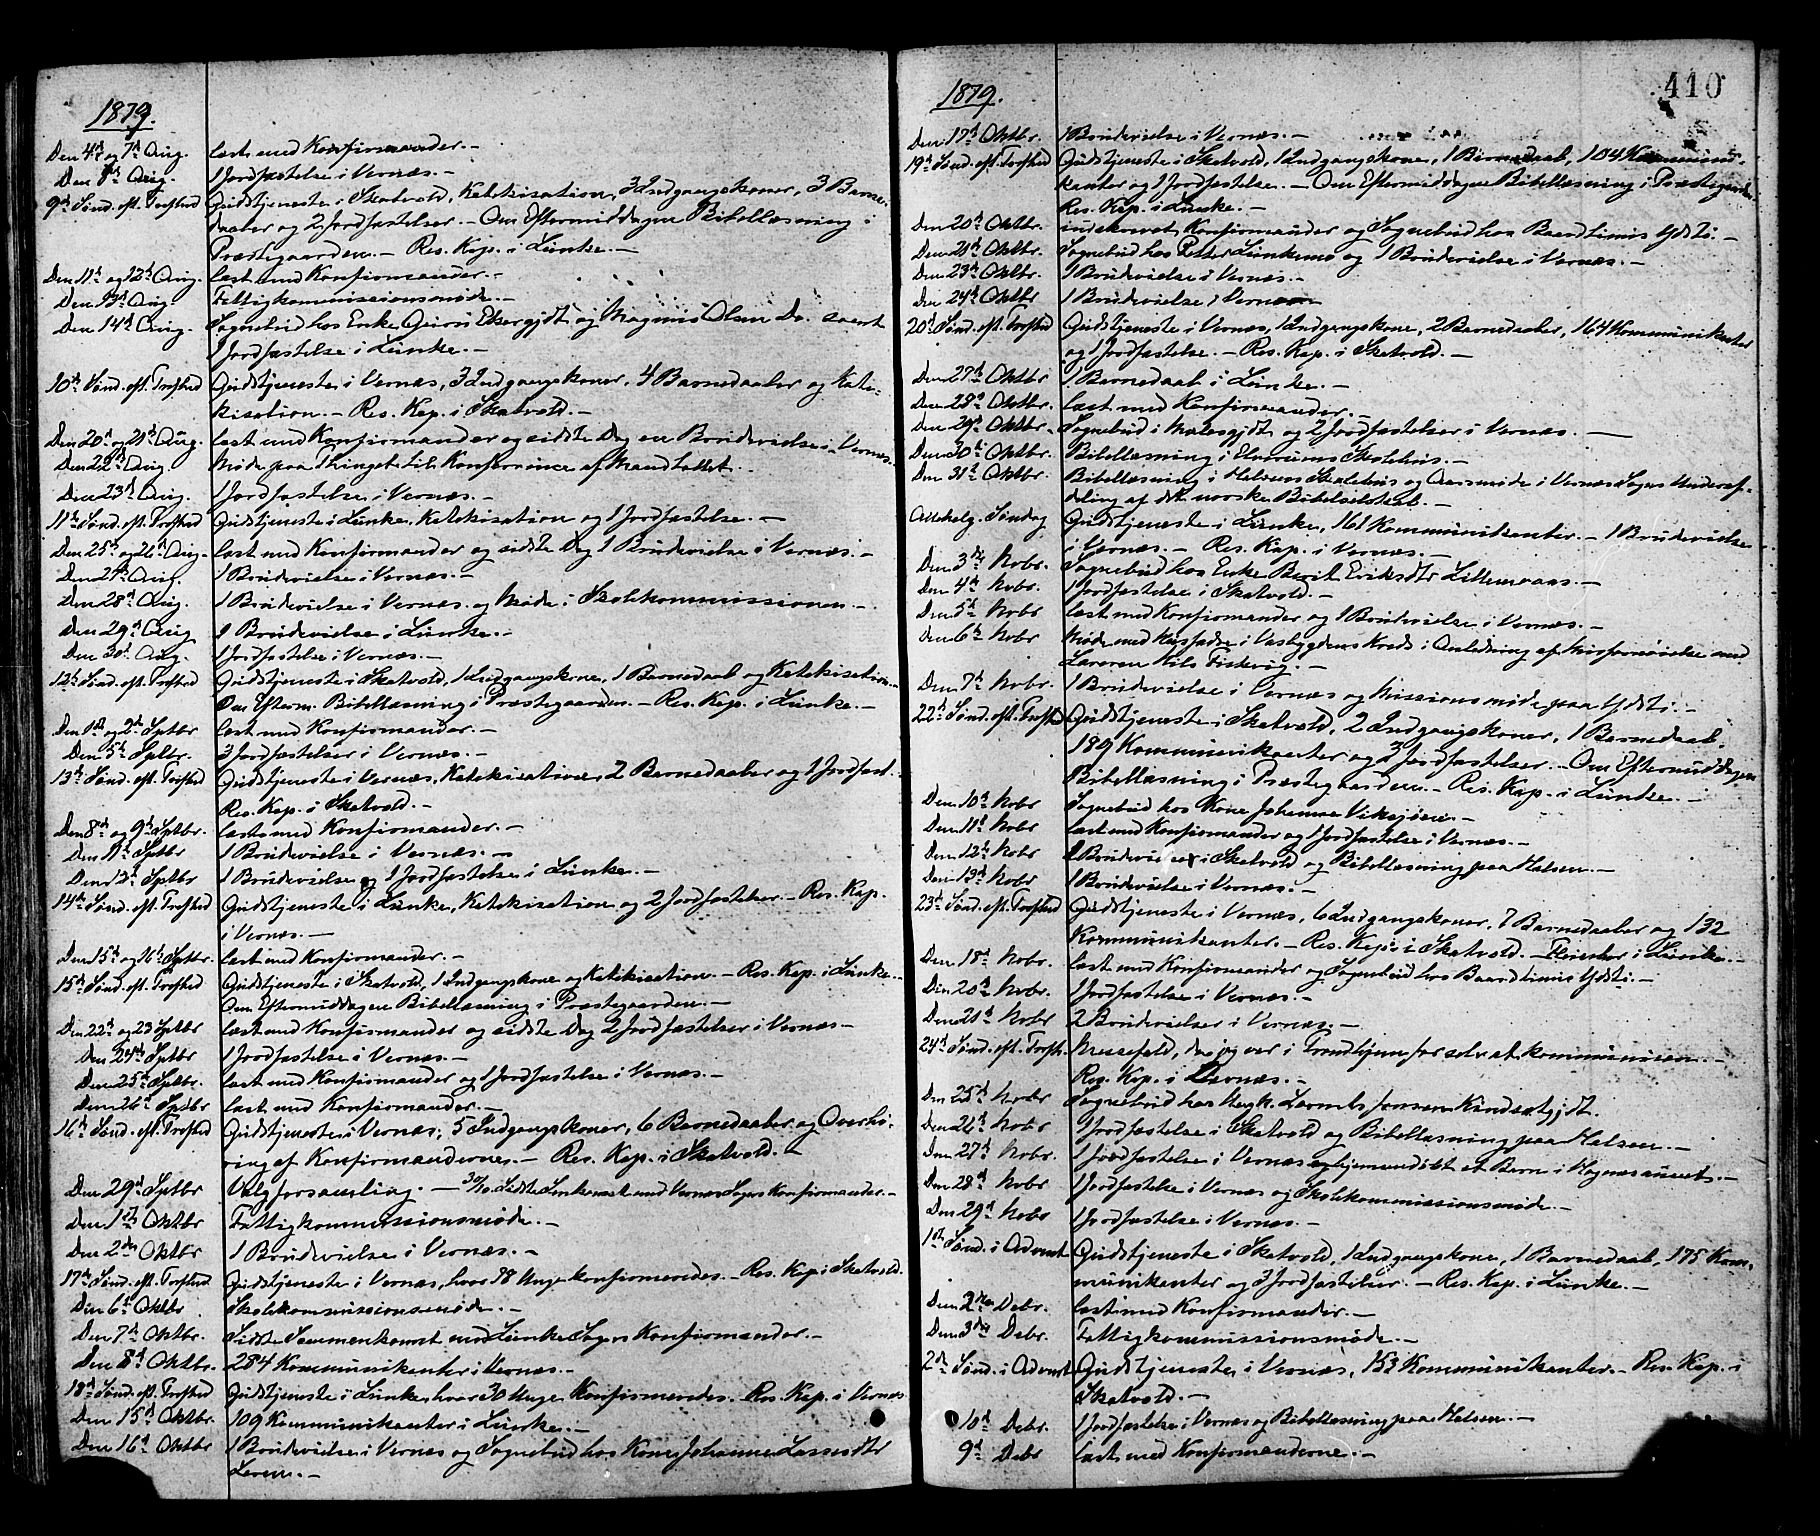 1879.
Den 4de og 7de Aug. læst med Konfirmander. -
Den 8de Aug. 1 Jordfæstelse i Vernæs. -
9de Sønd. eft. Trefshed Gudstjeneste i Skatvold, Katekisation, 3 Indgangskoner, 3 Barne-
daaber og 2 Jordfæstelser. - Om Eftermiddagen Bibellæsning i
Præstegaarden. - Res. Kap. i Lånke. -
Den 11te og 12te Aug. læst med Konfirmander. -
Den 13de Aug. Fattigkommissionsmøde. -
Den 14de Aug. Sognebud hos Enke Guru Ekergjdt og Magnus Olsen Do. samt
1 Jordfæstelse i Lånke. -
10de Sønd. eft. Trefshed Gudstjeneste i Vernæs, 3 Indgangskoner, 4 Barnedaaber og Kate-
kisation. - Res. Kap. i Skatvold. -
Den 20de og 21de Aug. læst med Konfirmander og sidste Dag en Brudevielse i Vernæs.
Den 22de Aug. Møde paa Thinget til Konferrince af Mandtallet. -
Den 23de Aug. 1 Jordfæstelse i Vernæs. -
11te Sønd. eft. Trefshed Gudstjeneste i Lånke, Katekisation og 1 Jordfæstelse. -
Den 25de og 26de Aug. læst med Konfirmander og sidste Dag 1 Brudevielse i Vernæs. -
Den 27de Aug. 1 Brudevielse i Vernæs. -
Den 28de Aug. 1 Brudevielse i Vernæs og Møde i Skolekommissionen. -
Den 29de Aug 1 Brudevielse i Lånke. -
Den 30de Aug. 1 Jordfæstelse i Vernæs. -
12te Sønd. eft. Trefshed Gudstjeneste i Skatvold, 1 Indgangskone, 1 Barnedaab og Katekisation. -
Om Efterm. Bibellæsning i Præstegaarden. - Res. Kap. i Lånke. -
Den 1ste og 2den Sptbr læst med Konfirmander. -
Den 5te Sptbr. 3 Jordfæstelser i Vernæs. -
13de Sønd. eft. Trefshed Gudstjeneste i Vernæs, Katekisation, 2 Barnedaaber og 1 Jordfæst. -
Res. Kap. i Skatvold. -
Den 8de og 9de Sptbr. læst med Konfirmander. -
Den 11te Sptbr 1 Brudevielse i Vernæs. -
Den 12te Sptbr 1 Brudevielse og 1 Jordfæstelse i Lånke. -
14de Sønd. eft. Trefshed Gudstjeneste i Lånke, Katekisation og 2 Jordfæstelser. - Res. Kap.
i Vernæs. -
Den 15de og 16de Sptbr. læst med Konfirmander. -
15de Sønd. eft. Trefshed Gudstjeneste i Skatvold, 1 Indgangskone og Katekisation. - Res. Kap. i Lånke. -
Om Eftermiddagen Bibellæsning i Præstegaarden. -
Den 22de og 23 Sptbr læst med Konfirmander og sidste Dag 2 Jordfæstelser i Vernæs. -
Den 24de Sptbr 1 Jordfæstelse i Vernæs. -
Den 25de Sptbr. læst med Konfirmander og 1 Jordfæstelse i Vernæs. -
Den 26de Sptbr læst med Konfirmander. -
16de Sønd. eft. Trefshed Gudstjeneste i Vernæs, 5 Indgangskoner, 6 Barnedaaber og Overhø-
ring af Konfirmanderne. - Res. Kap. i Skatvold. -
Den 29de Sptbr Valgforsamling. - 30/9. Sidste Samkomst med Vernæs Sogns Konfirmander. -
Den 1ste Oktbr Fattigkommissionsmøde. -
Den 2den Oktbr 1 Brudevielse i Vernæs. -
17de Sønd. eft. Trefshed Gudstjeneste i Vernæs, hvor 78 Unge konfirmeredes. - Res. Kap. i Skatvold.
Den 6te Oktbr Skolekommissionsmøde. -
Den 7de Oktbr. Sidste Sammenkomst med Lånke Sogns Konfirmander. -
Den 8de Oktbr. 284 Kommunikanter i Vernæs. -
18de Sønd. eft. Trefshed Gudstjeneste i Lånke, hvor 30 Unge Konfirmeredes. - Res. Kap. i Vernæs
Den 15de Oktbr. 109 Kommunikanter i Lånke. -
Den 16de Oktbr 1 Brudevielse i Vernæs og Sognebud hos Kone Johanna Lassesdtr
Leren. -
410
1879.
Den 17de Oktbr. 1 Brudevielse i Vernæs. -
19de Sønd. eft. Trefshed Gudstjeneste i Skatvold, 1 Indgangskone, 1 Barnedaab, 104 Kommuni-
kanter og 1 Jordfæstelse. - Om Eftermiddagen Bibellæsning i Præstegaarden.
Res. Kap. i Lånke. -
Den 20de Oktbr. indskrevet Konfirmander og Sognebud hos Baardtinus Ydsti. -
Den 21de Oktbr. Sognebud hos Petter Lånkemo og 1 Brudevielse i Vernæs. -
Den 23de Oktbr. 1 Brudevielse i Vernæs. -
Den 24de Oktbr 1 Brudevielse i Vernæs -
20de Sønd. eft. Trefshed Gudstjeneste i Vernæs, 1 Indgangskone, 2 Barnedaaber, 164 Kommunikanter
og 1 Jordfæstelse. - Res. Kap. i Skatvold. -
Den 27de Oktbr 1 Barnedaab i Lånke. -
Den 28de Oktbr. læst med Konfirmander. -
Den 29de Oktbr. Sognebud i Mælesgjdt og 2 Jordfæstelser i Vernæs. -
Den 30te Oktbr Bibellæsning i Elverums Skolehus. -
Den 31te Oktbr. Bibellæsning i Helsems Skolehus og Aarsmøde i Vernæs Sogns Underaf-
deling af det norske Bibelselskab. -
Allehelg. Søndag Gudstjeneste i Lånke, 161 Kommunikanter. - 1 Brudevielse
i Vernæs. - Res. Kap. i Vernæs. -
Den 3die Nobr. Sognebud hos Enke Berit Eriksdtr Lillemoaas. -
Den 4de Nobr. 1 Jordfæstelse i Skatvold. -
Den 5te Nobr læst med Konfirmander og 1 Brudevielse i Vernæs. -
Den 6te Nobr Møde med Husfædre i Vasbygdens Kreds i Anledning af Misfornøielse med
Læreren Nils Fiskvig. -
Den 7de Nobr. 1 Brudevielse i Vernæs og Missionsmøde paa Ydsti. -
22de Sønd. eft. Trefshed Gudstjeneste i Skatvold, 2 Indgangskoner, 1 Barnedaab,
189 Kommunikanter og 2 Jordfæstelser. - Om Eftermiddagen
Bibellæsning i Præstegaarden. - Res. Kap. i Lånke. -
Den 10de Nobr Sognebud hos Kone Johanna Viksjøen. -
Den 11te Nobr læst med Konfirmander og 1 Jordfæstelse i Vernæs. -
Den 12te Nobr 1 Brudevielse i Skatvold og Bibellæsning paa Halsen. -
Den 13de Nobr 1 Brudevielse i Vernæs. -
23de Sønd. eft. Trefshed Gudstjeneste i Vernæs, 6 Indgangskoner, 7 Barnedaaber og 132
Kommunikanter. - Res. Kap. i Skatvold. - i Lånke. -
Den 18de Nobr. læst med Konfirmander og Sognebud hos Baardtinus Ydsti. -
Den 20de Nobr. 1 Jordfæstelse i Vernæs. -
Den 21de Nobr 2 Brudevielser i Vernæs. -
24de Sønd. eft. Trefsh. Messefald, da jeg var i Trondhjem for selv at kommunicere. -
Res. Kap. i Vernæs. -
Den 25de Nobr Sognebud hos Ungk. Jonsen Kindsetgjdt.
Den 26de Nobr 1 Jordfæstelse i Skatvold og Bibellæsning paa Halsen. -
Den 27de Nobr. 1 Jordfæstelse i Vernæs og hjemmedøbt et Barn i -
Den 28de Nobr 1 Jordfæstelse i Vernæs og Skolekommissionsmøde. -
Den 29de Nobr 1 Jordfæstelse i Vernæs. -
1ste Sønd. i Advent Gudstjeneste i Skatvold, 1 Indgangskone, 1 Barnedaab, 175 Kom-
munikanter og 3 Jordfæstelser. - Res. Kap. i Lånke. -
Den 2den Debr. læst med Konfirmander. -
Den 3die Debr. Fattigkommissionsmøde. -
2den Sønd. i Advent Gudstjeneste i Vernæs, 153 Kommunikanter. - Res. Kap. i
Skatvold. -
10de Debr. 1 Jordfæstelse i Vernæs og Bibellæsning paa Halsen. -
9de Debr læst med Konfirmanderne. -